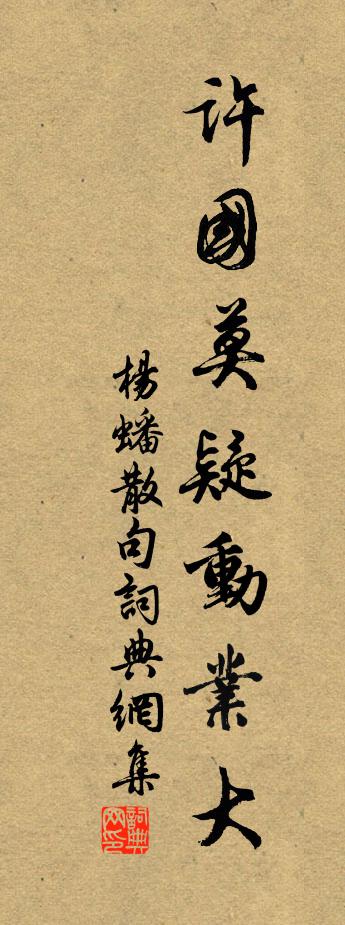 許國莫疑動業大
楊蟠散句詞典網集
詞典網印